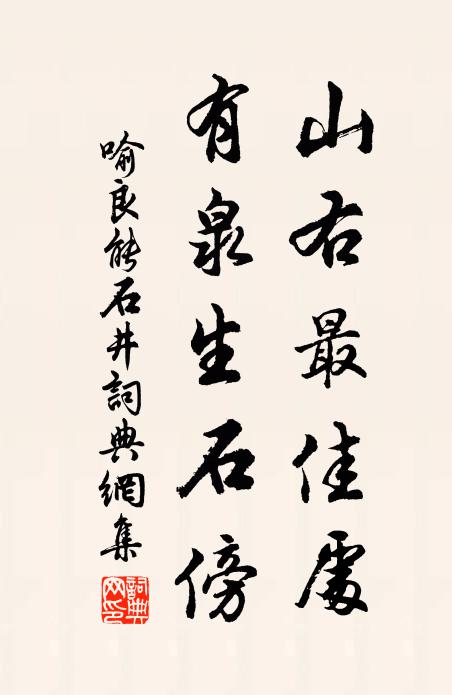 山右最佳處
有泉生石傍
喻良能石井詞典網集
詞典
网印